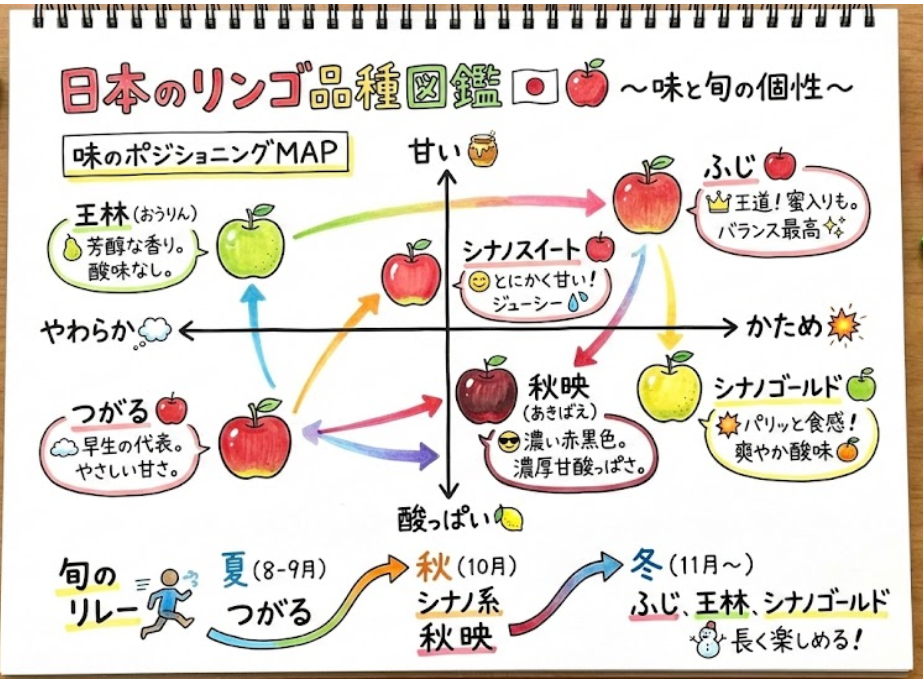 日本のリンゴ品種図鑑 ～味と旬の個性～
味のポジショニングMAP
甘い
王林(おうりん)
芳醇な香り。
酸味なし。
シナノスイート
とにかく甘い!
ジューシー
ふじ
王道!蜜入りも。
バランス最高
やわらか
かため
つがる
早生の代表。
やさしい甘さ。
秋映
(あきばえ)
濃い赤黒色。
濃厚甘酸っぱさ。
シナノゴールド
パリッと食感!
爽やか酸味
酸っぱい
旬の
リレー
夏(8-9月)
つがる
秋(10月)
シナノ系
秋映
冬(11月～)
ふじ、王林、シナノゴールド
長く楽しめる!